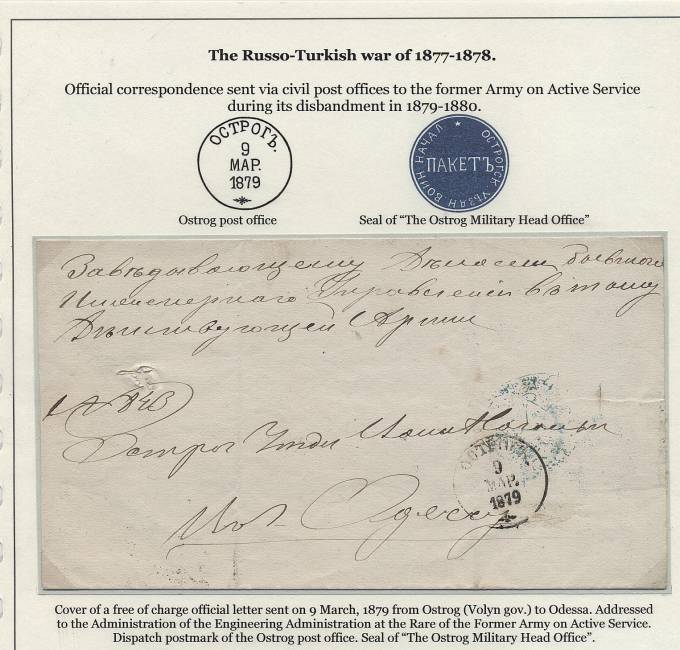 The Russo-Turkish war of 1877-1878.
Official correspondence sent via civil post offices to the former Army on Active Service
during its disbandment in 1879-1880.
ОСТРОГЪ.
9
МАР.
1879
ОСТРОГСК УѢЗДН ВОИН НАЧАЛ
ПАКЕТЪ
Ostrog post office
Seal of “The Ostrog Military Head Office”
Завѣдывающему Дѣлами бывшаго
Инженернаго Управленія
Дѣйствующей Арміи
№ 843
Острог
9
МАР.
1879
Одессу
Cover of a free of charge official letter sent on 9 March, 1879 from Ostrog (Volyn gov.) to Odessa. Addressed
to the Administration of the Engineering Administration at the Rare of the Former Army on Active Service.
Dispatch postmark of the Ostrog post office. Seal of “The Ostrog Military Head Office”.